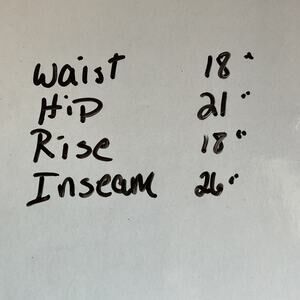 Waist 18"
Hip 21"
Rise 18"
Inseam 26"